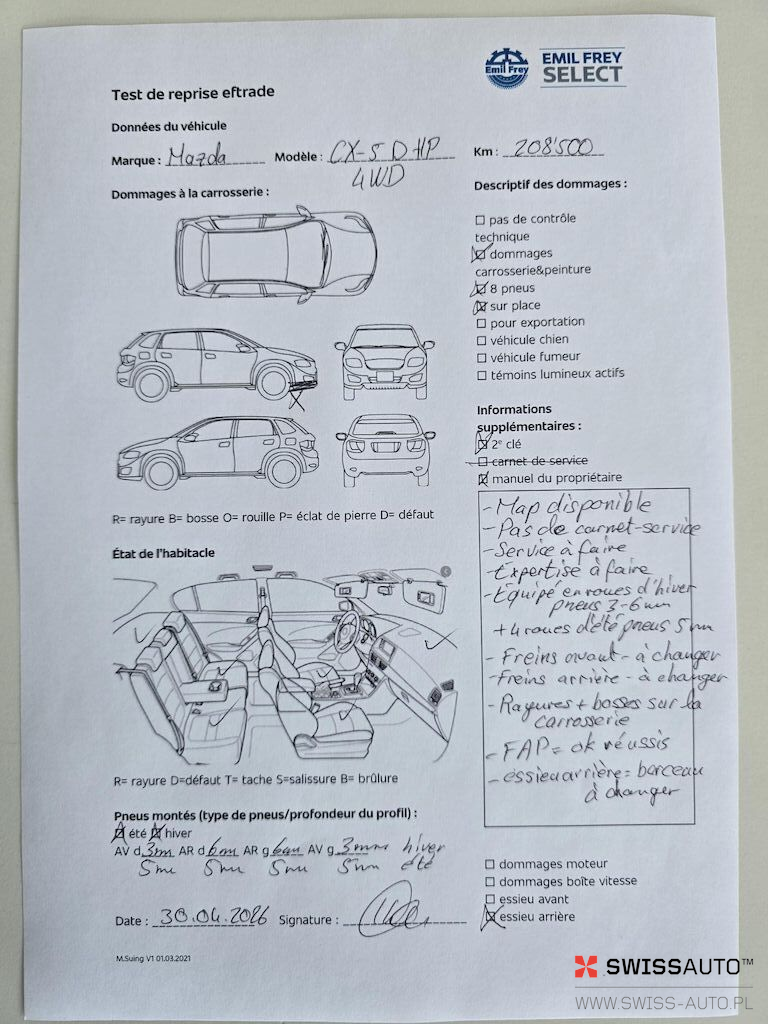 Emil Frey
EMIL FREY
SELECT
Test de reprise eftrade
Données du véhicule
Marque : Mazda Modèle : CX-5 D HP Km : 208'500
4WD
Dommages à la carrosserie :
Descriptif des dommages :
pas de contrôle
technique
dommages
carrosserie&peinture
8 pneus
sur place
pour exportation
véhicule chien
véhicule fumeur
témoins lumineux actifs
R= rayure B= bosse O= rouille P= éclat de pierre D= défaut
Informations
supplémentaires :
2e clé
carnet de service
manuel du propriétaire
- Map disponible
- Pas de carnet-service
- Service à faire
- Expertise à faire
- Équipé en roues d'hiver
pneus 3-6mm
+ 4 roues d'été pneus 5mm
- Freins avant - à changer
- Freins arrière - à changer
- Rayures + bosses sur la
carrosserie
- FAP = ok réussis
- essieu arrière = berceau
à changer
État de l'habitacle
R= rayure D=défaut T= tache S=salissure B= brûlure
Pneus montés (type de pneus/profondeur du profil) :
été hiver
AV d 3mm AR d 6mm AR g 6mm AV g 3mm hiver
5mm 5mm 5mm 5mm été
Date : 30.04.2026 Signature :
dommages moteur
dommages boîte vitesse
essieu avant
essieu arrière
M.Suing V1 01.03.2021
SWISSAUTO™
WWW.SWISS-AUTO.PL